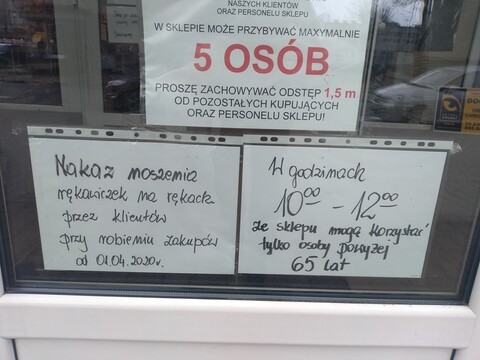 NASZYCH KLIENTÓW
ORAZ PERSONELU SKLEPU
W SKLEPIE MOŻE PRZYBYWAĆ MAXYMALNIE
5 OSÓB
PROSZĘ ZACHOWYWAĆ ODSTĘP 1,5 m
OD POZOSTAŁYCH KUPUJĄCYCH
ORAZ PERSONELU SKLEPU!
Nakaz noszenia
rękawiczek na rękach
przez klientów
przy robieniu zakupów
od 01.04.2020r.
W godzinach
10⁰⁰ - 12⁰⁰
ze sklepu mogą korzystać
tylko osoby powyżej
65 lat